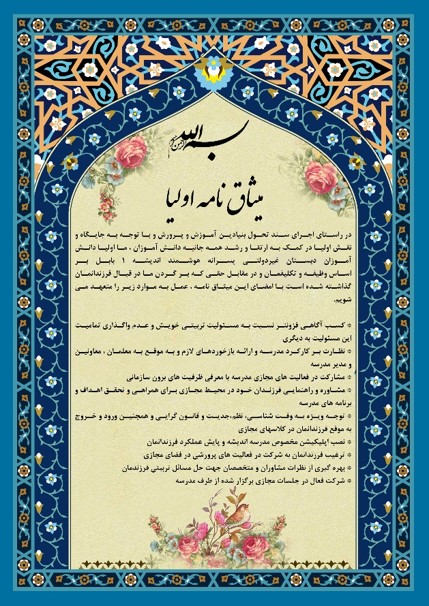 بسم الله الرحمن الرحیم
میثاق نامه اولیا
در راستای اجرای سند تحول بنیادین آموزش و پرورش و با توجه به جایگاه و
نقش اولیا در کمک به ارتقا و رشد همه جانبه دانش آموزان ، ما اولیا دانش
آموزان دبستان غیردولتی پسرانه هوشمند اندیشه ۱ بابل بر
اساس وظیفه و تکلیفمان و در مقابل حقی که بر گردن ما در قبال فرزندانمان
گذاشته شده است با امضای این میثاق نامه ، عمل به موارد زیر را متعهد می
شویم.
* کسب آگاهی فزونتر نسبت به مسئولیت تربیتی خویش و عدم واگذاری تمامیت
این مسئولیت به دیگری
* نظارت بر کارکرد مدرسه و ارائه بازخوردهای لازم و به موقع به معلمان ، معاونین
و مدیر مدرسه
* مشارکت در فعالیت های مجازی مدرسه با معرفی ظرفیت های برون سازمانی
* مشاوره و راهنمایی فرزندان خود در محیط مجازی برای همراهی و تحقق اهداف و
برنامه های مدرسه
* توجه ویژه به وقت شناسی، نظم،جدیت و قانون گرایی و همچنین ورود و خروج
به موقع فرزندانمان در کلاسهای مجازی
* نصب اپلیکیشن مخصوص مدرسه اندیشه و پایش عملکرد فرزندانمان
* ترغیب فرزندانمان به شرکت در فعالیت های پرورشی در فضای مجازی
* بهره گیری از نظرات مشاوران و متخصصان جهت حل مسائل تربیتی فرزندمان
* شرکت فعال در جلسات مجازی برگزار شده از طرف مدرسه